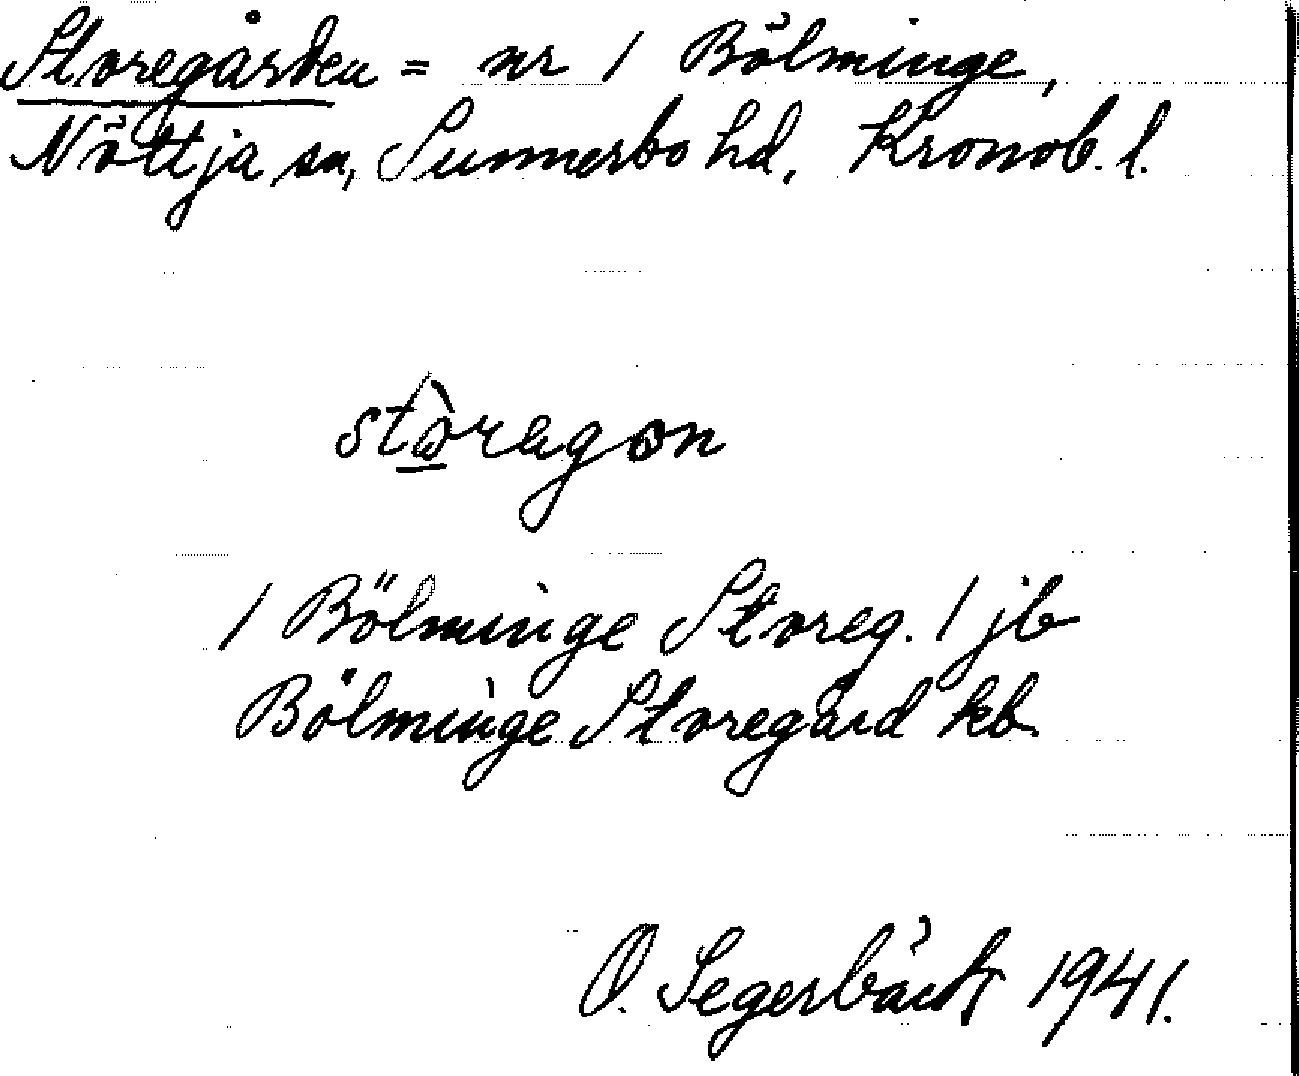 Storegården = nr 1 Bölminge,
Nöttja sn, Sunnerbo hd, Kronob. l.
stòragon
1 Bölminge Storeg. 1 jb
Bölminge Storegård kb
O. Segerbäck 1941.